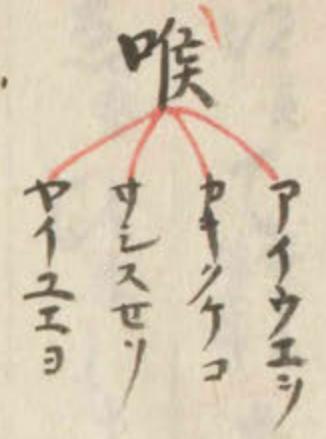 喉
アイウエヲ
カキクケコ
サシスセソ
ヤイユエヨ